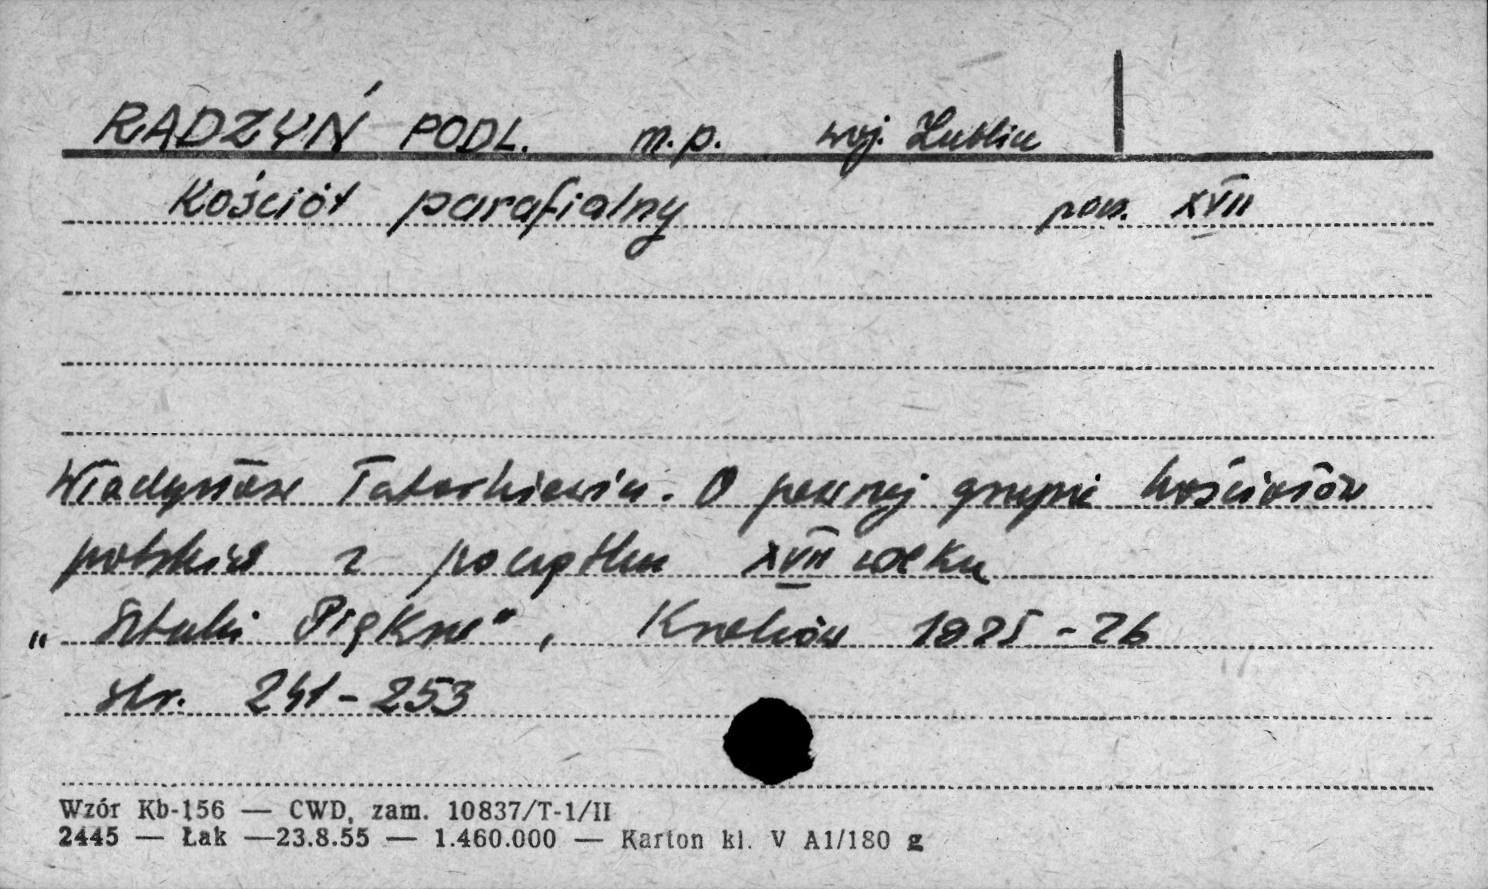 RADZYŃ PODL. m.p. woj. Lublin
Kościół parafialny pocz. XVII
Władysław Tatarkiewicz. O pewnej grupie kościołów
polskich z początku XVII wieku
„Sztuki Piękne", Kraków 1925-26
str. 241-253
Wzór Kb-156 — CWD, zam. 10837/T-1/II
2445 — Łak —23.8.55 — 1.460.000 — Karton kl. V A1/180 g